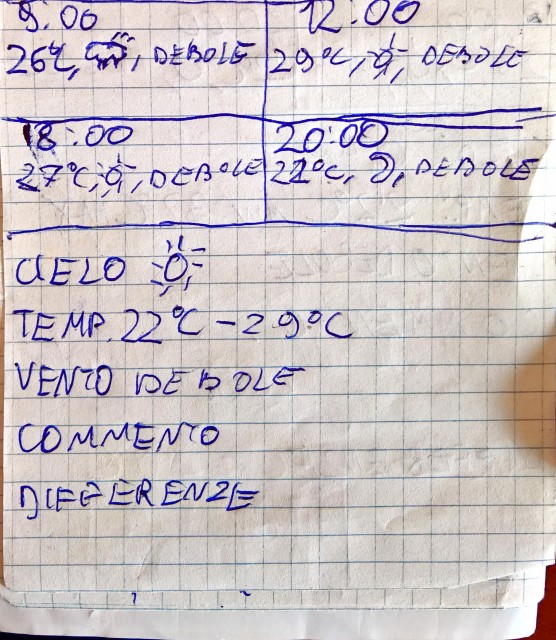 9:00 12:00
26°C, , DEBOLE 29°C, , DEBOLE
18:00 20:00
27°C, , DEBOLE 22°C, , DEBOLE
CIELO
TEMP. 22°C - 29°C
VENTO DEBOLE
COMMENTO
DIFFERENZE